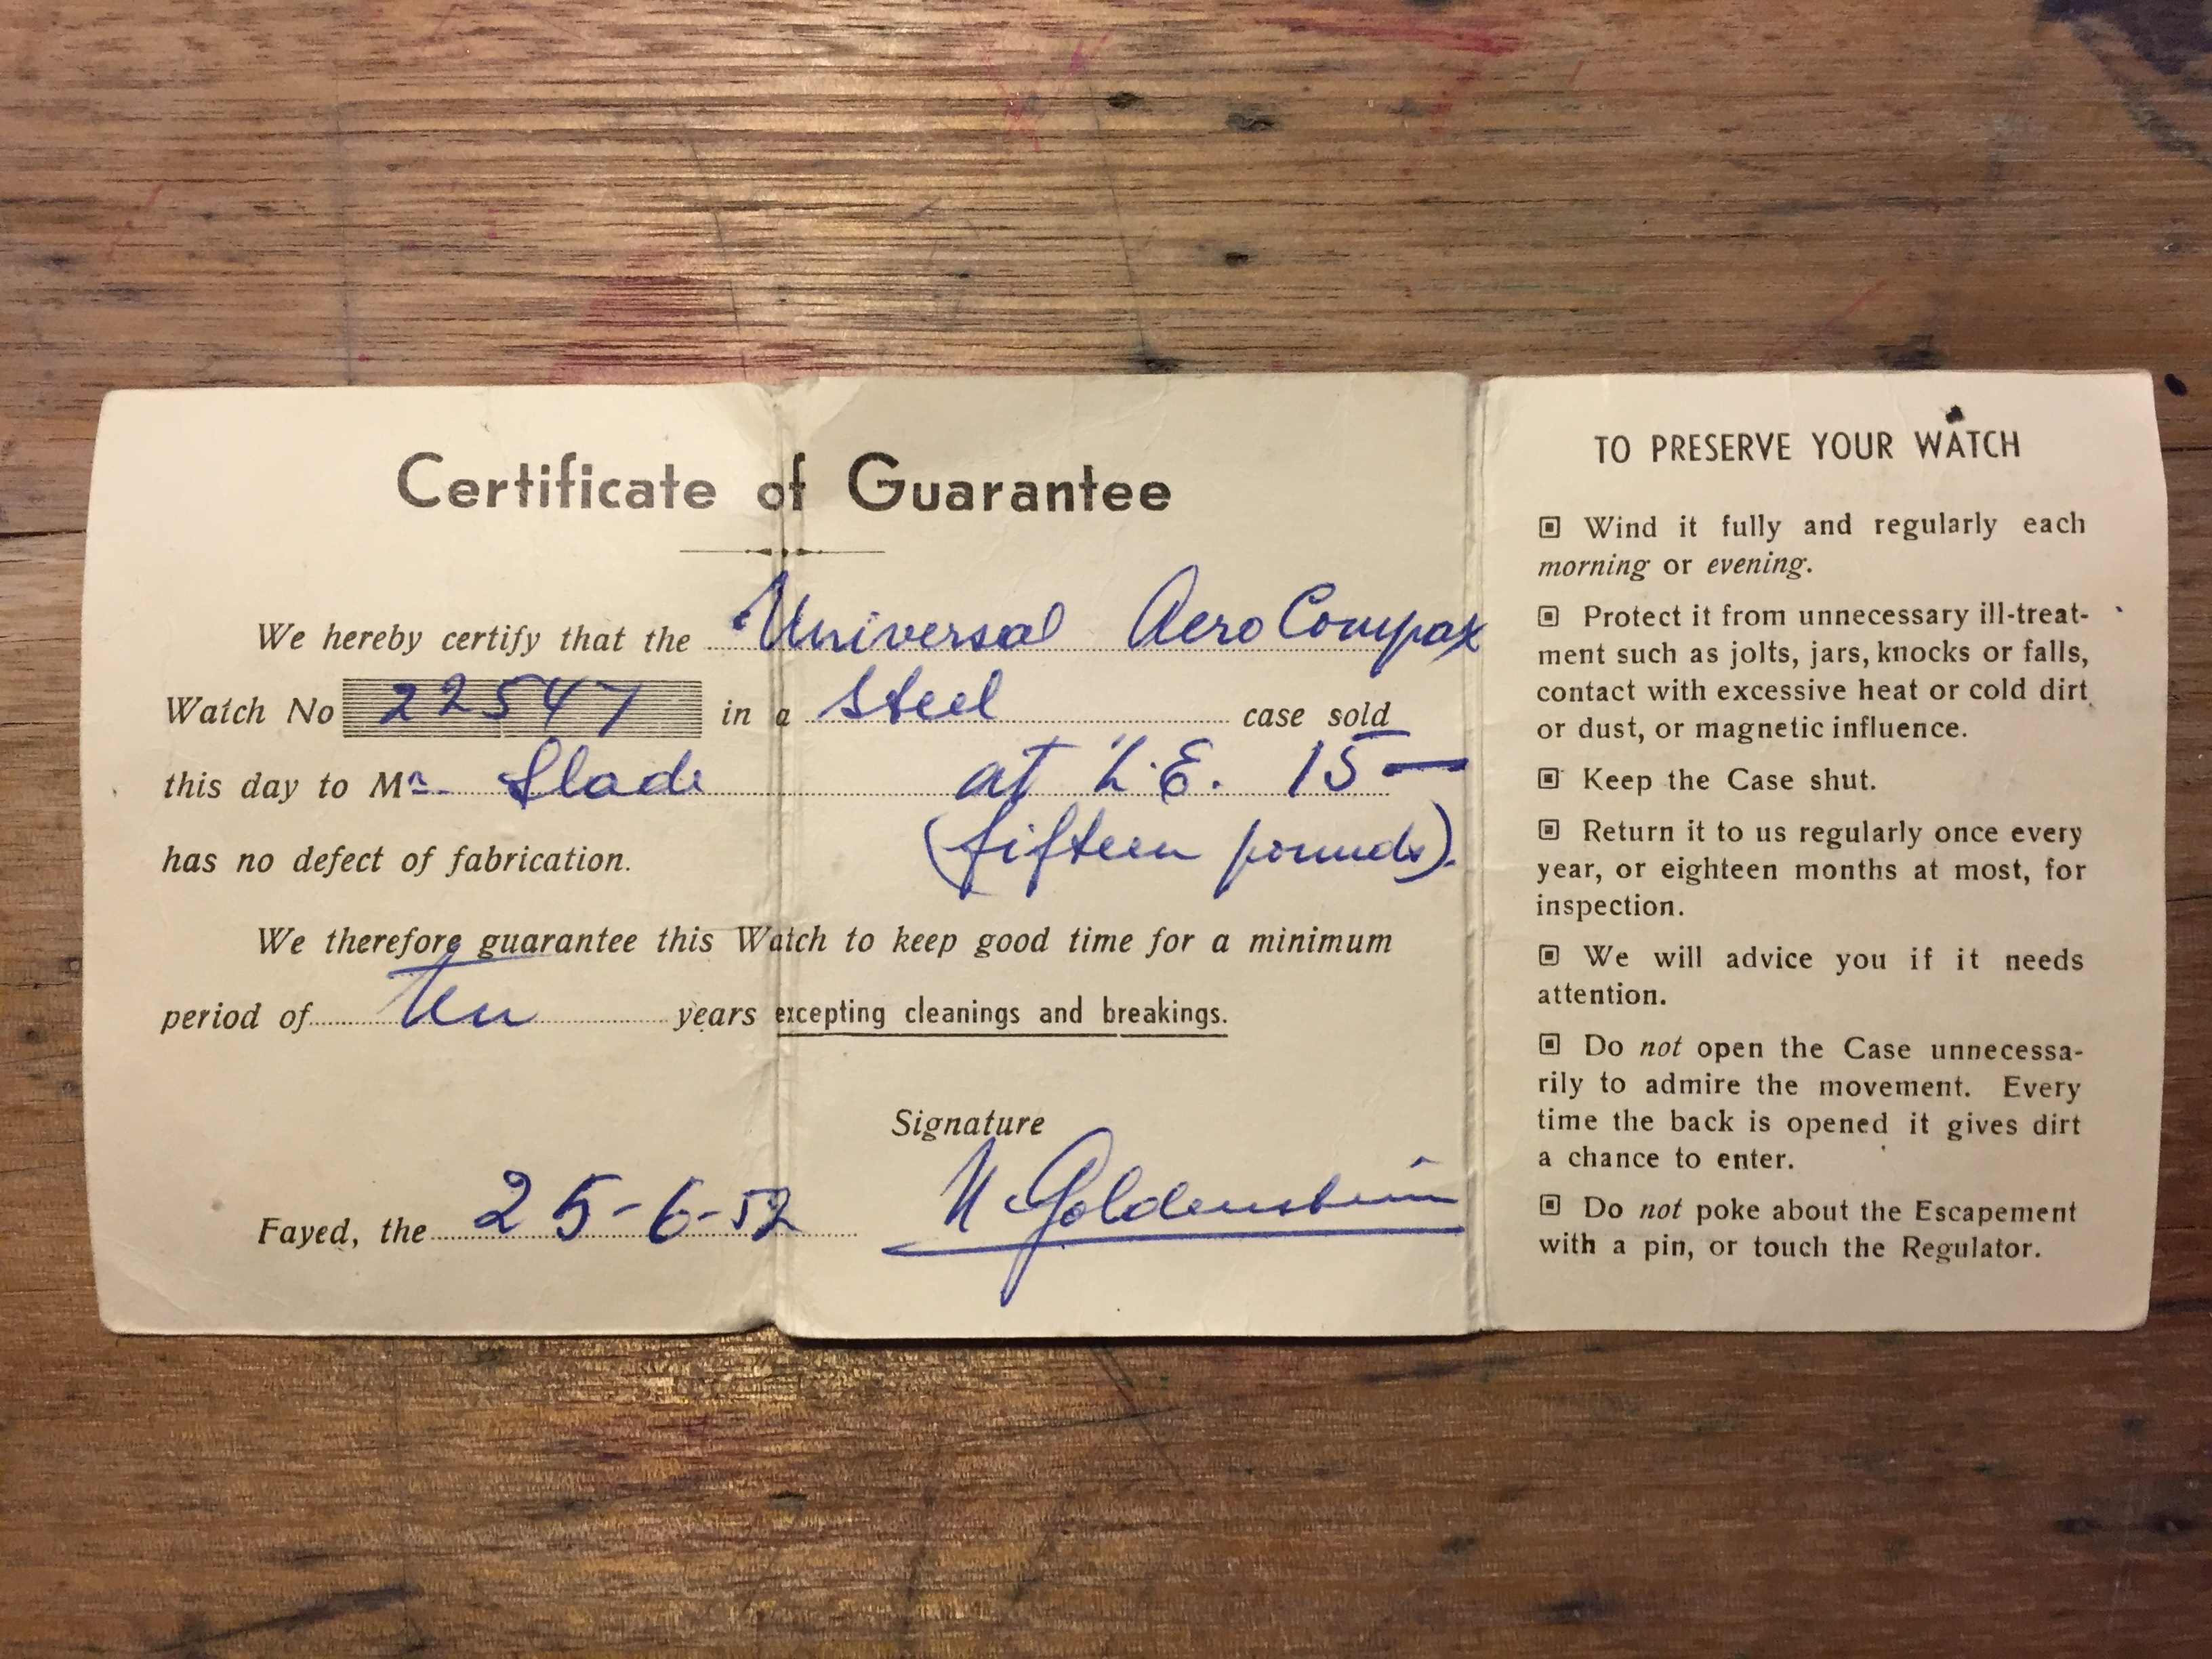 Certificate of Guarantee
We hereby certify that the Universal AeroCompax
Watch No 22547 in a Steel case sold
this day to Mr. Slade at L.E. 15—
has no defect of fabrication. (fifteen pounds).
We therefore guarantee this Watch to keep good time for a minimum
period of ten years excepting cleanings and breakings.
Signature
Fayed, the 25-6-52 Goldenstein
TO PRESERVE YOUR WATCH
Wind it fully and regularly each
morning or evening.
Protect it from unnecessary ill-treat-
ment such as jolts, jars, knocks or falls,
contact with excessive heat or cold dirt
or dust, or magnetic influence.
Keep the Case shut.
Return it to us regularly once every
year, or eighteen months at most, for
inspection.
We will advice you if it needs
attention.
Do not open the Case unnecessa-
rily to admire the movement. Every
time the back is opened it gives dirt
a chance to enter.
Do not poke about the Escapement
with a pin, or touch the Regulator.